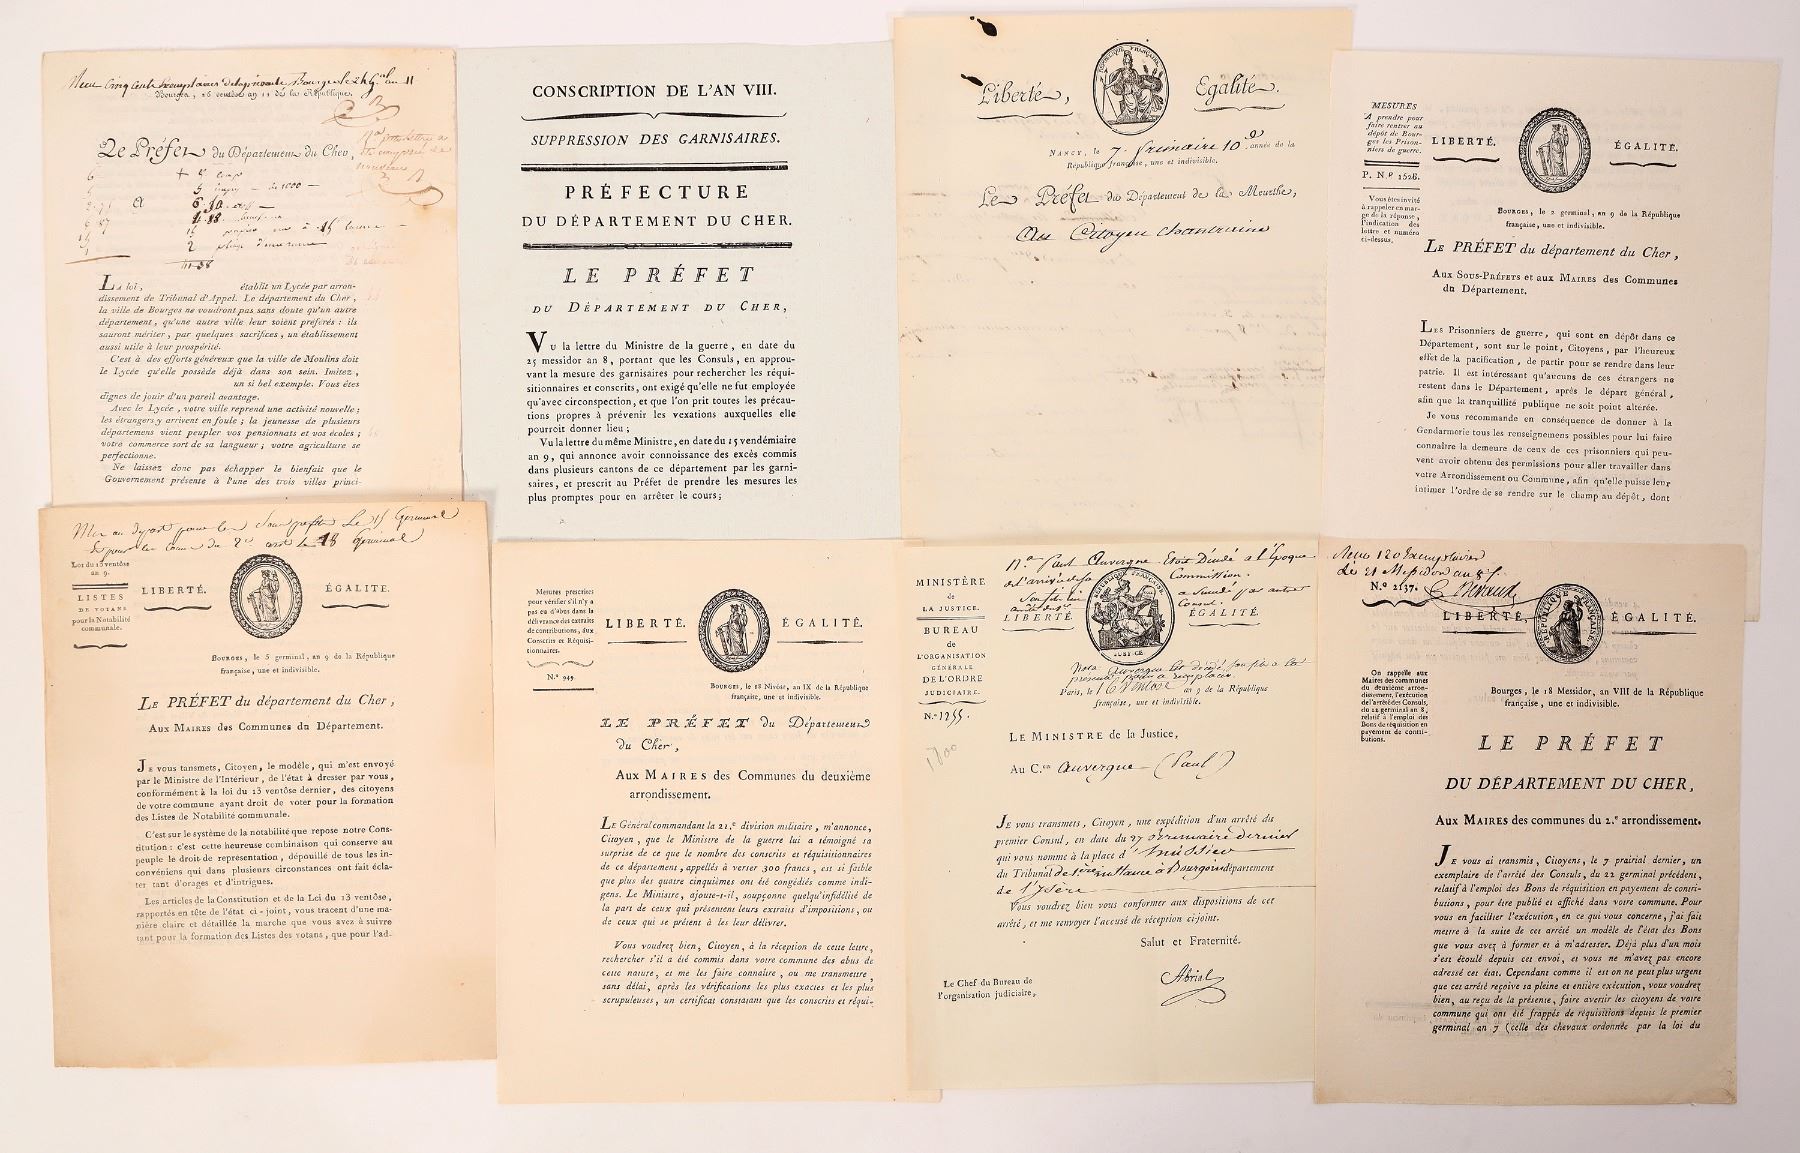 Bourges, 26 ventôse an 11 de la République.
Le Préfet du Département du Cher,
LA loi, établit un Lycée par arron-
dissement de Tribunal d'Appel. Le département du Cher,
la ville de Bourges ne voudront pas sans doute qu'un autre
département, qu'une autre ville leur soient préférés : ils
sauront mériter, par quelques sacrifices, un établissement
aussi utile à leur prospérité.
C'est à des efforts généreux que la ville de Moulins doit
le Lycée qu'elle possède déjà dans son sein. Imitez,
un si bel exemple. Vous êtes
dignes de jouir d'un pareil avantage.
Avec le Lycée, votre ville reprend une activité nouvelle ;
les étrangers y arrivent en foule ; la jeunesse de plusieurs
départemens vient peupler vos pensionnats et vos écoles ;
votre commerce sort de sa langueur ; votre agriculture se
perfectionne.
Ne laissez donc pas échapper le bienfait que le
Gouvernement présente à l'une des trois villes princi-
CONSCRIPTION DE L'AN VIII.
SUPPRESSION DES GARNISAIRES.
PRÉFECTURE
DU DÉPARTEMENT DU CHER.
LE PRÉFET
DU DÉPARTEMENT DU CHER,
VU la lettre du Ministre de la guerre, en date du
25 messidor an 8, portant que les Consuls, en approu-
vant la mesure des garnisaires pour rechercher les réqui-
sitionnaires et conscrits, ont exigé qu'elle ne fut employée
qu'avec circonspection, et que l'on prit toutes les précau-
tions propres à prévenir les vexations auxquelles elle
pourroit donner lieu ;
Vu la lettre du même Ministre, en date du 15 vendémiaire
an 9, qui annonce avoir connoissance des excès commis
dans plusieurs cantons de ce département par les garni-
saires, et prescrit au Préfet de prendre les mesures les
plus promptes pour en arrêter le cours ;
RÉPUBLIQUE FRANÇAISE
Liberté, Egalité.
NANCY, le 7. frimaire 10e année de la
République française, une et indivisible.
Le Préfet du Département de la Meurthe,
Au Citoyen chantraine
MESURES
A prendre pour
faire rentrer au
dépôt de Bour-
ges les Prison-
niers de guerre.
P. N.º 1528.
Vous êtes invité
à rappeler en mar-
ge de la réponse,
l'indication des
lettre et numéro
ci-dessus.
LIBERTÉ. ÉGALITÉ.
BOURGES, le 2 germinal, an 9 de la République
française, une et indivisible.
LE PRÉFET du département du Cher,
AUX SOUS-PRÉFETS et aux MAIRES des Communes
du Département.
LES Prisonniers de guerre, qui sont en dépôt dans ce
Département, sont sur le point, Citoyens, par l'heureux
effet de la pacification, de partir pour se rendre dans leur
patrie. Il est intéressant qu'aucuns de ces étrangers ne
restent dans le Département, après le départ général,
afin que la tranquillité publique ne soit point altérée.
Je vous recommande en conséquence de donner à la
Gendarmerie tous les renseignemens possibles pour lui faire
connaître la demeure de ceux de ces prisonniers qui peu-
vent avoir obtenu des permissions pour aller travailler dans
votre Arrondissement ou Commune, afin qu'elle puisse leur
intimer l'ordre de se rendre sur le champ au dépôt, dont
Mis au départ pour les Sous préfets Le 15 Germinal
Loi du 13 ventôse
an 9.
LISTES
DE VOTANS
pour la Notabilité
communale.
LIBERTÉ. ÉGALITÉ.
BOURGES, le 5 germinal, an 9 de la République
française, une et indivisible.
LE PRÉFET du département du Cher,
AUX MAIRES des Communes du Département.
JE vous tansmets, Citoyen, le modèle, qui m'est envoyé
par le Ministre de l'Intérieur, de l'état à dresser par vous,
conformément à la loi du 13 ventôse dernier, des citoyens
de votre commune ayant droit de voter pour la formation
des Listes de Notabilité communale.
C'est sur le système de la notabilité que repose notre Cons-
titution : c'est cette heureuse combinaison qui conserve au
peuple le droit de représentation, dépouillé de tous les in-
convéniens qui dans plusieurs circonstances ont fait écla-
ter tant d'orages et d'intrigues.
Les articles de la Constitution et de la Loi du 13 ventôse,
rapportés en tête de l'état ci-joint, vous tracent d'une ma-
nière claire et détaillée la marche que vous avez à suivre
tant pour la formation des Listes des votans, que pour l'ad-
Mesures prescrites
pour vérifier s'il n'y a
pas eu d'abus dans la
délivrance des extraits
de contributions, aux
Conscrits et Réquisi-
tionnaires.
N.º 949.
LIBERTÉ. ÉGALITÉ.
BOURGES, le 18 Nivôse, an IX de la République
française, une et indivisible.
LE PRÉFET du Département
du Cher,
AUX MAIRES des Communes du deuxième
arrondissement.
LE Général commandant la 21.e division militaire, m'annonce,
Citoyen, que le Ministre de la guerre lui a témoigné sa
surprise de ce que le nombre des conscrits et réquisitionnaires
de ce département, appellés à verser 300 francs, est si faible
que plus des quatre cinquièmes ont été congédiés comme indi-
gens. Le Ministre, ajoute-t-il, soupçonne quelqu'infidélité de
la part de ceux qui présentent leurs extraits d'impositions, ou
de ceux qui se prêtent à les leur délivrer.
Vous voudrez bien, Citoyen, à la réception de cette lettre,
rechercher s'il a été commis dans votre commune des abus de
cette nature, et me les faire connaître, ou me transmettre,
sans délai, après les vérifications les plus exactes et les plus
scrupuleuses, un certificat constatant que les conscrits et réqui-
MINISTÈRE
de
LA JUSTICE.
BUREAU
de
L'ORGANISATION
GÉNÉRALE
DE L'ORDRE
JUDICIAIRE.
N.º 1255.
1800
RÉPUBLIQUE FRANÇAISE
JUSTICE
LIBERTÉ. ÉGALITÉ.
Paris, le 16 Nivose an 9 de la République
française, une et indivisible.
LE MINISTRE de la Justice,
Au C.en Auvergne (Paul)
JE vous transmets, Citoyen, une expédition d'un arrêté du
premier Consul, en date du 27 frimaire dernier
qui vous nomme à la place d'huissier
du Tribunal de 1ère instance à Bourgoin département
de l'Isère
Vous voudrez bien vous conformer aux dispositions de cet
arrêté, et me renvoyer l'accusé de réception ci-joint.
Salut et Fraternité.
Le Chef du Bureau de
l'organisation judiciaire,
Abrial
Reçu 120 Exemplaires
Le 21 Messidor an 8.
N.º 2137.
RÉPUBLIQUE FRANÇAISE
LIBERTÉ, ÉGALITÉ.
On rappelle aux
Maires des communes
du deuxième arron-
dissement, l'exécution
de l'arrêté des Consuls,
du 22 germinal an 8,
relatif à l'emploi des
Bons de réquisition en
payement de contri-
butions.
Bourges, le 18 Messidor, an VIII de la République
française, une et indivisible.
LE PRÉFET
DU DÉPARTEMENT DU CHER,
AUX MAIRES des communes du 2.e arrondissement.
JE vous ai transmis, Citoyens, le 7 prairial dernier, un
exemplaire de l'arrêté des Consuls, du 22 germinal précédent,
relatif à l'emploi des Bons de réquisition en payement de contri-
butions, pour être publié et affiché dans votre commune. Pour
vous en faciliter l'exécution, en ce qui vous concerne, j'ai fait
mettre à la suite de cet arrêté un modèle de l'état des Bons
que vous avez à former et à m'adresser. Déjà plus d'un mois
s'est écoulé depuis cet envoi, et vous ne m'avez pas encore
adressé cet état. Cependant comme il est on ne peut plus urgent
que cet arrêté reçoive sa pleine et entière exécution, vous voudrez
bien, au reçu de la présente, faire avertir les citoyens de votre
commune qui ont été frappés de réquisitions depuis le premier
germinal an 7 (celle des chevaux ordonnée par la loi du